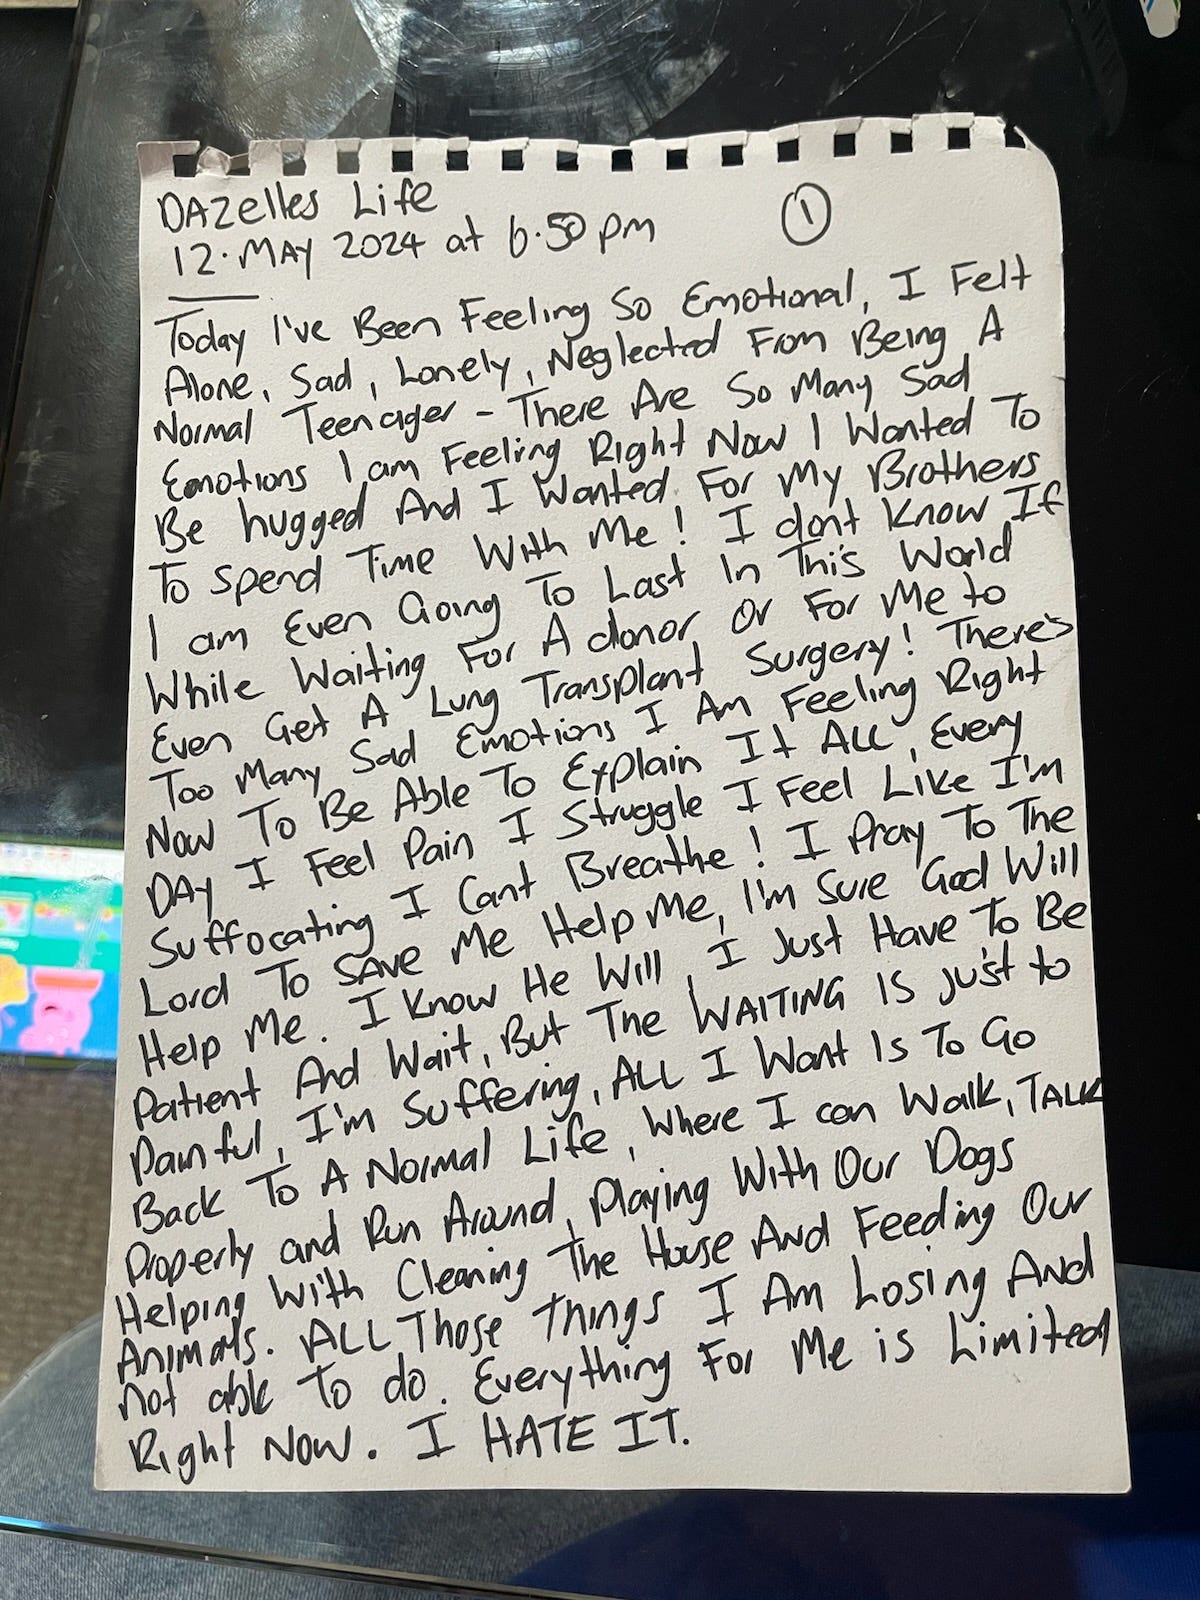 DAZelles Life
12. MAY 2024 at 6.50 pm
1
Today I've Been Feeling So Emotional, I Felt
Alone, Sad, Lonely, Neglected From Being A
Normal Teenager - There Are So Many Sad
Emotions I am Feeling Right Now I Wanted To
Be hugged And I Wanted For My Brothers
To spend Time With Me! I dont Know If
I am Even Going To Last In This World
While Waiting For A donor Or For Me to
Even Get A Lung Transplant Surgery! There's
Too Many Sad Emotions I Am Feeling Right
Now To Be Able To Explain It ALL, Every
DAY I Feel Pain I Struggle I Feel Like I'm
Suffocating I Cant Breathe! I Pray To The
Lord To SAve Me Help Me, I'm Sure God Will
Help Me. I Know He Will, I Just Have To Be
Patient And Wait, But The WAITING Is Just to
Painful, I'm Suffering, ALL I Want Is To Go
Back To A Normal Life, Where I can Walk, TALK
Properly and Run Around, Playing With Our Dogs
Helping With Cleaning The House And Feeding Our
Animals. ALL Those Things I Am Losing And
Not able To do. Everything For Me is Limited
Right Now. I HATE IT.